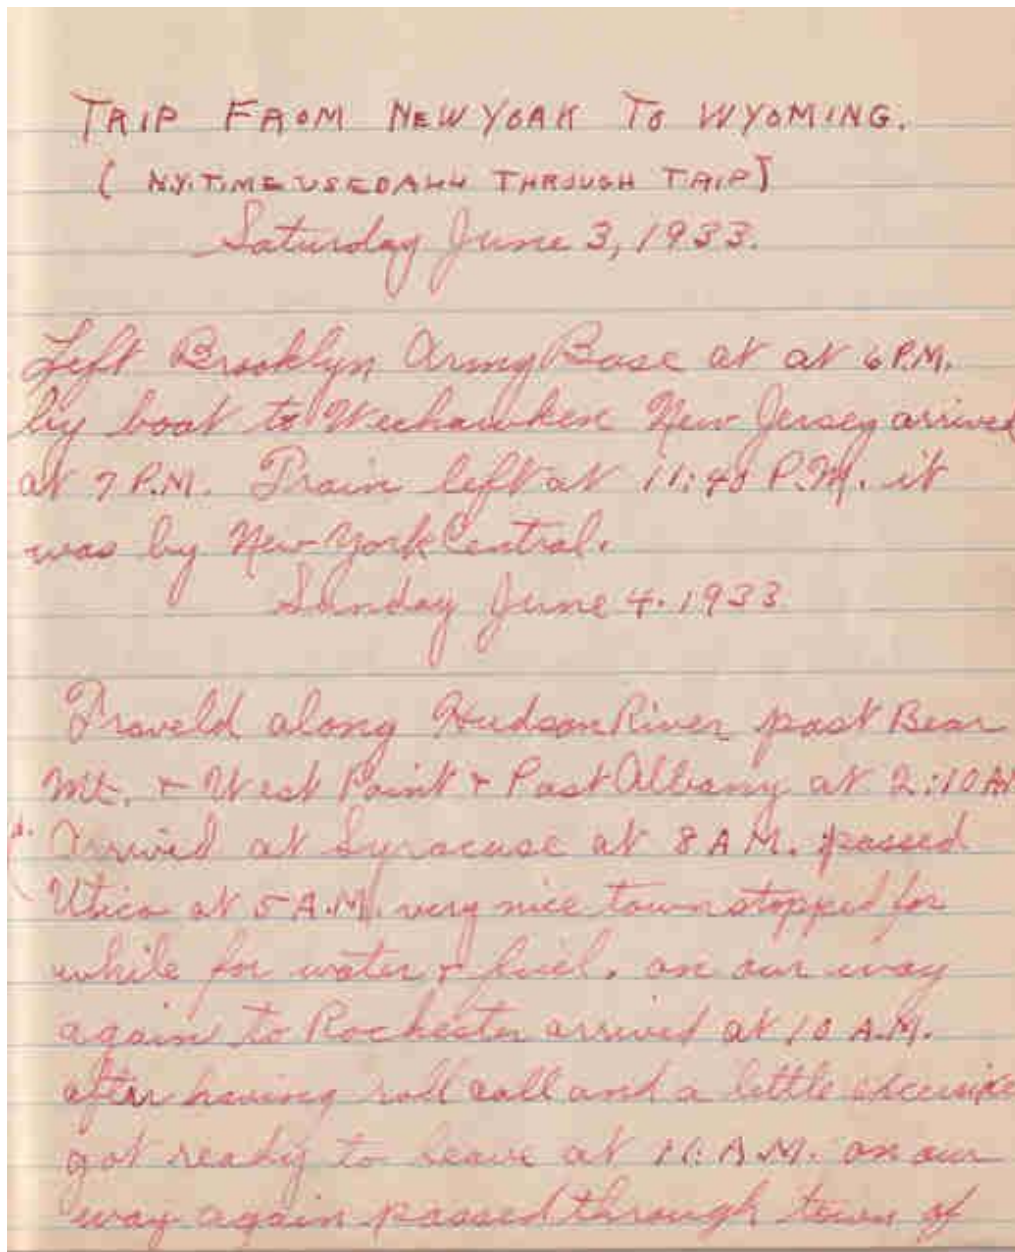 TRIP FROM NEW YORK TO WYOMING.
(N.Y. TIME USED ALL THROUGH TRIP)
Saturday June 3, 1933.
Left Brooklyn Army Base at at 6 P.M.
by boat to Weehawken New Jersey arrived
at 7 P.M. Train left at 11:40 P.M. it
was by New York Central.
Sunday June 4. 1933
Traveld along Hudson River past Bear
Mt. + West Point + Past Albany at 2:10 AM
Arrived at Syracuse at 8 A.M. passed
Utica at 5 A.M. very nice town stopped for
while for water + fuel. on our way
again to Rochester arrived at 10 A.M.
after having roll call and a little
got ready to leave at A.M. on our
way again passed through town of